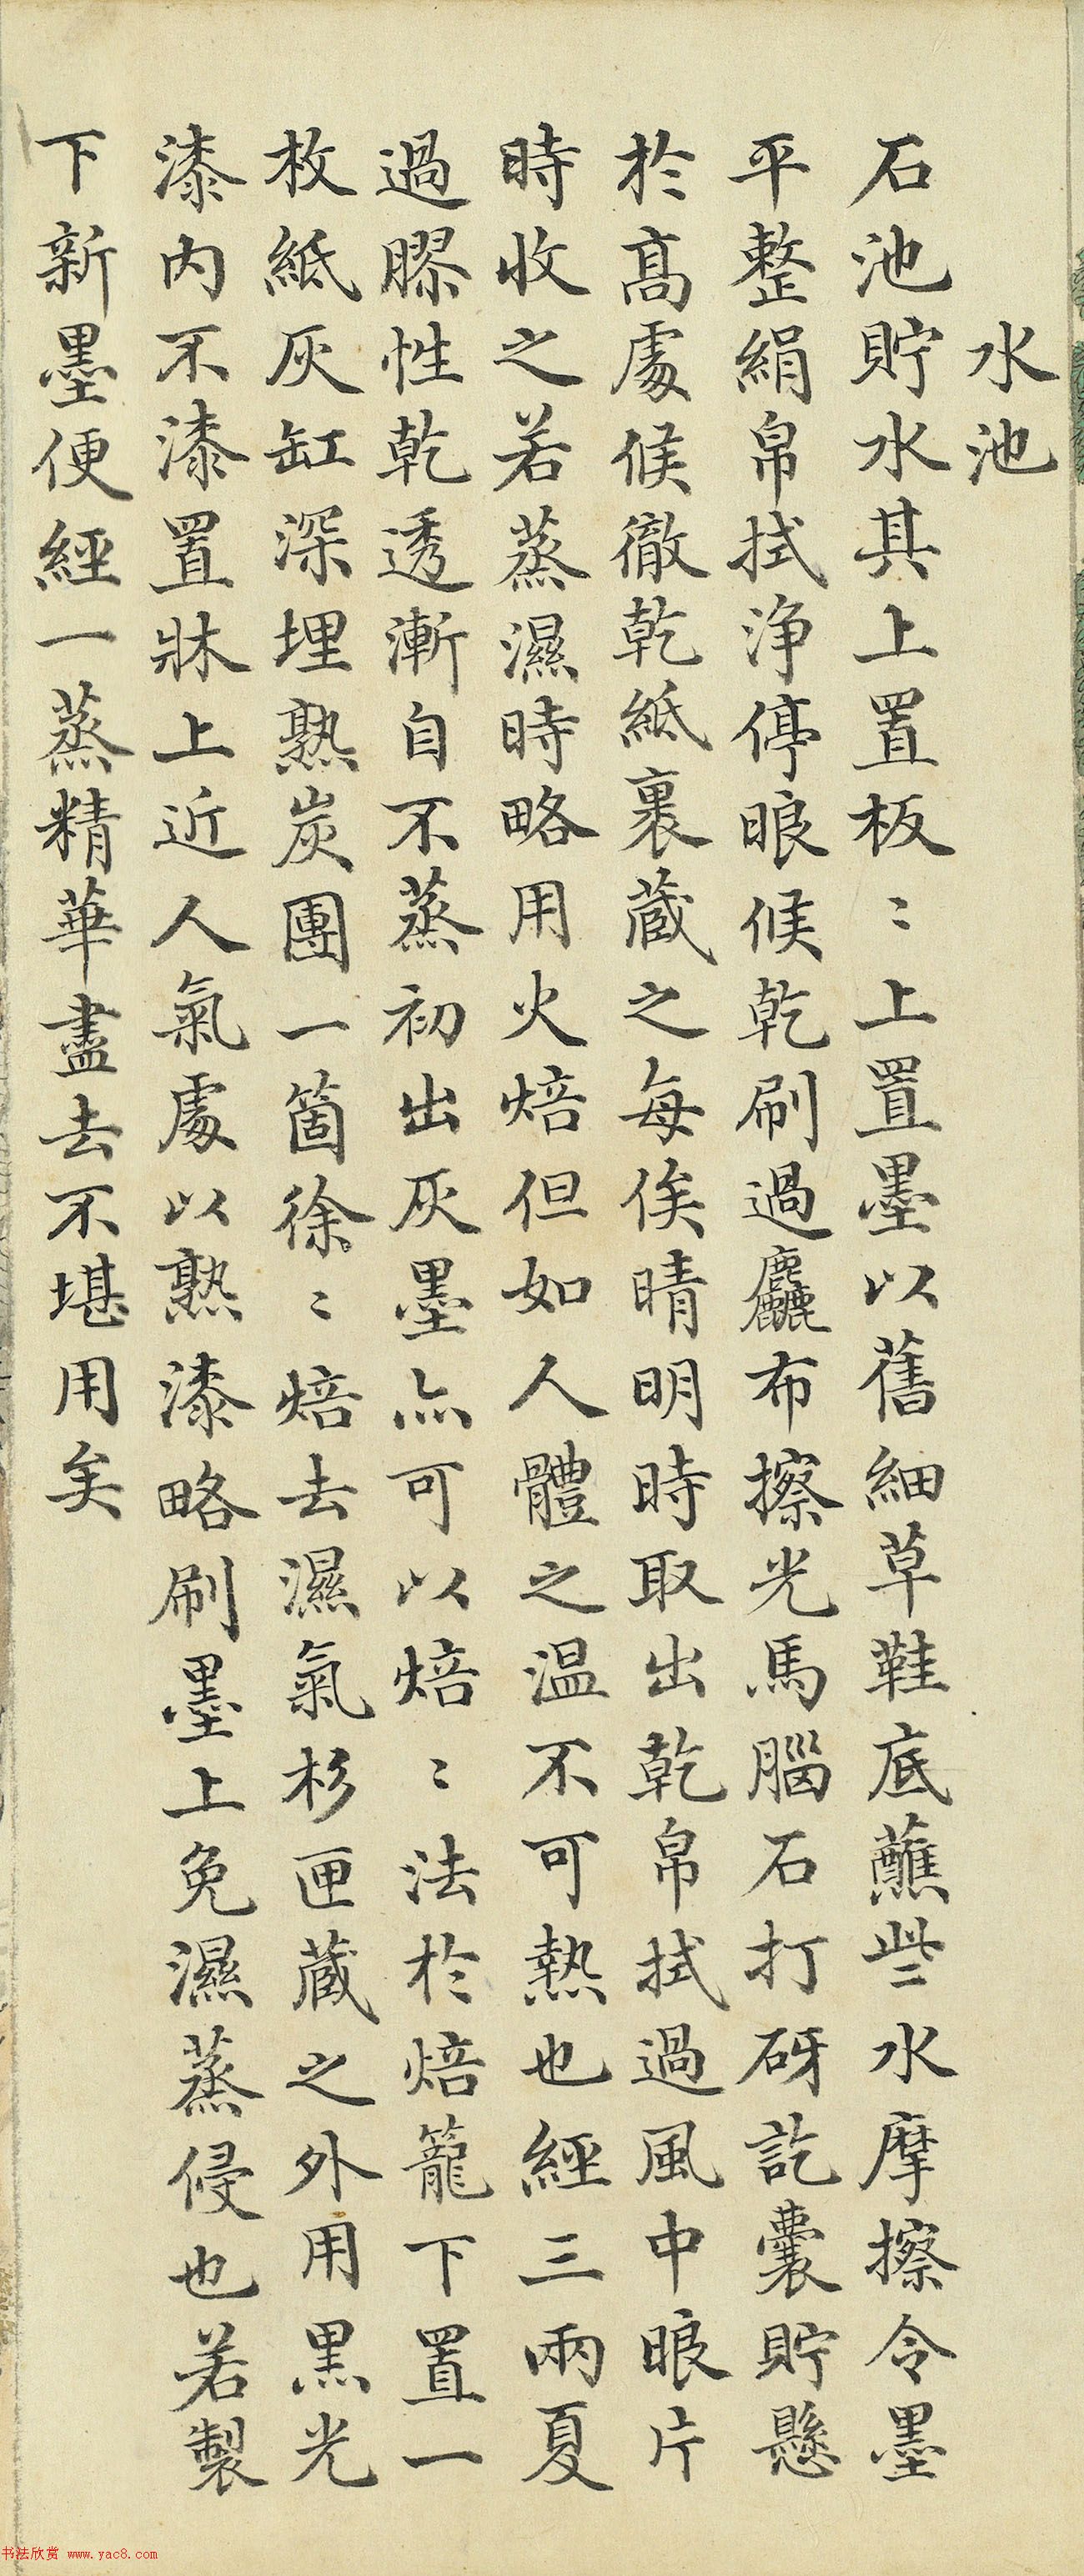 水池
石池貯水其上置板〻上置墨以舊細草鞋底蘸些水摩擦令墨
平整絹帛拭淨停眼候乾刷過麤布擦光馬腦石打砑訖囊貯懸
於高處候徹乾紙裹藏之每俟晴明時取出乾帛拭過風中眼片
時收之若蒸濕時略用火焙但如人體之温不可熱也經三兩夏
過膠性乾透漸自不蒸初出灰墨亦可以焙〻法於焙籠下置一
枚紙灰缸深埋熟炭團一箇徐〻焙去濕氣杉匣藏之外用黑光
漆內不漆置牀上近人氣處以熟漆略刷墨上免濕蒸侵也若製
下新墨便經一蒸精華盡去不堪用矣
书法欣赏 www.yac8.com